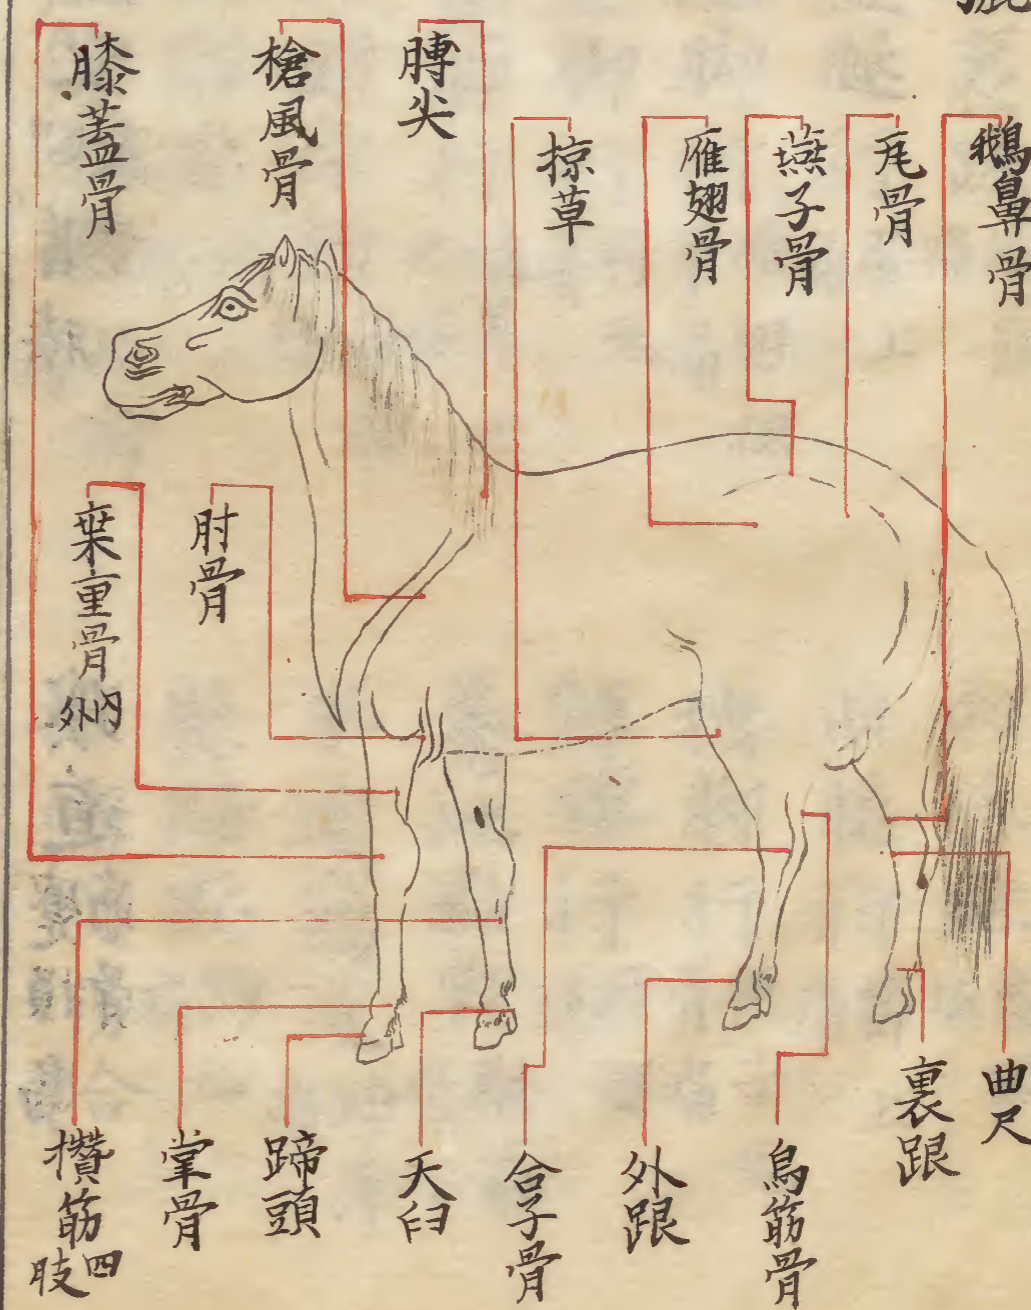 鵝鼻骨
尾骨
燕子骨
雁翅骨
掠草
膊尖
槍風骨
膝蓋骨
肘骨
乗重骨 內外
曲尺
裏跟
烏筋骨
外跟
合子骨
天臼
蹄頭
掌骨
攅筋 四肢